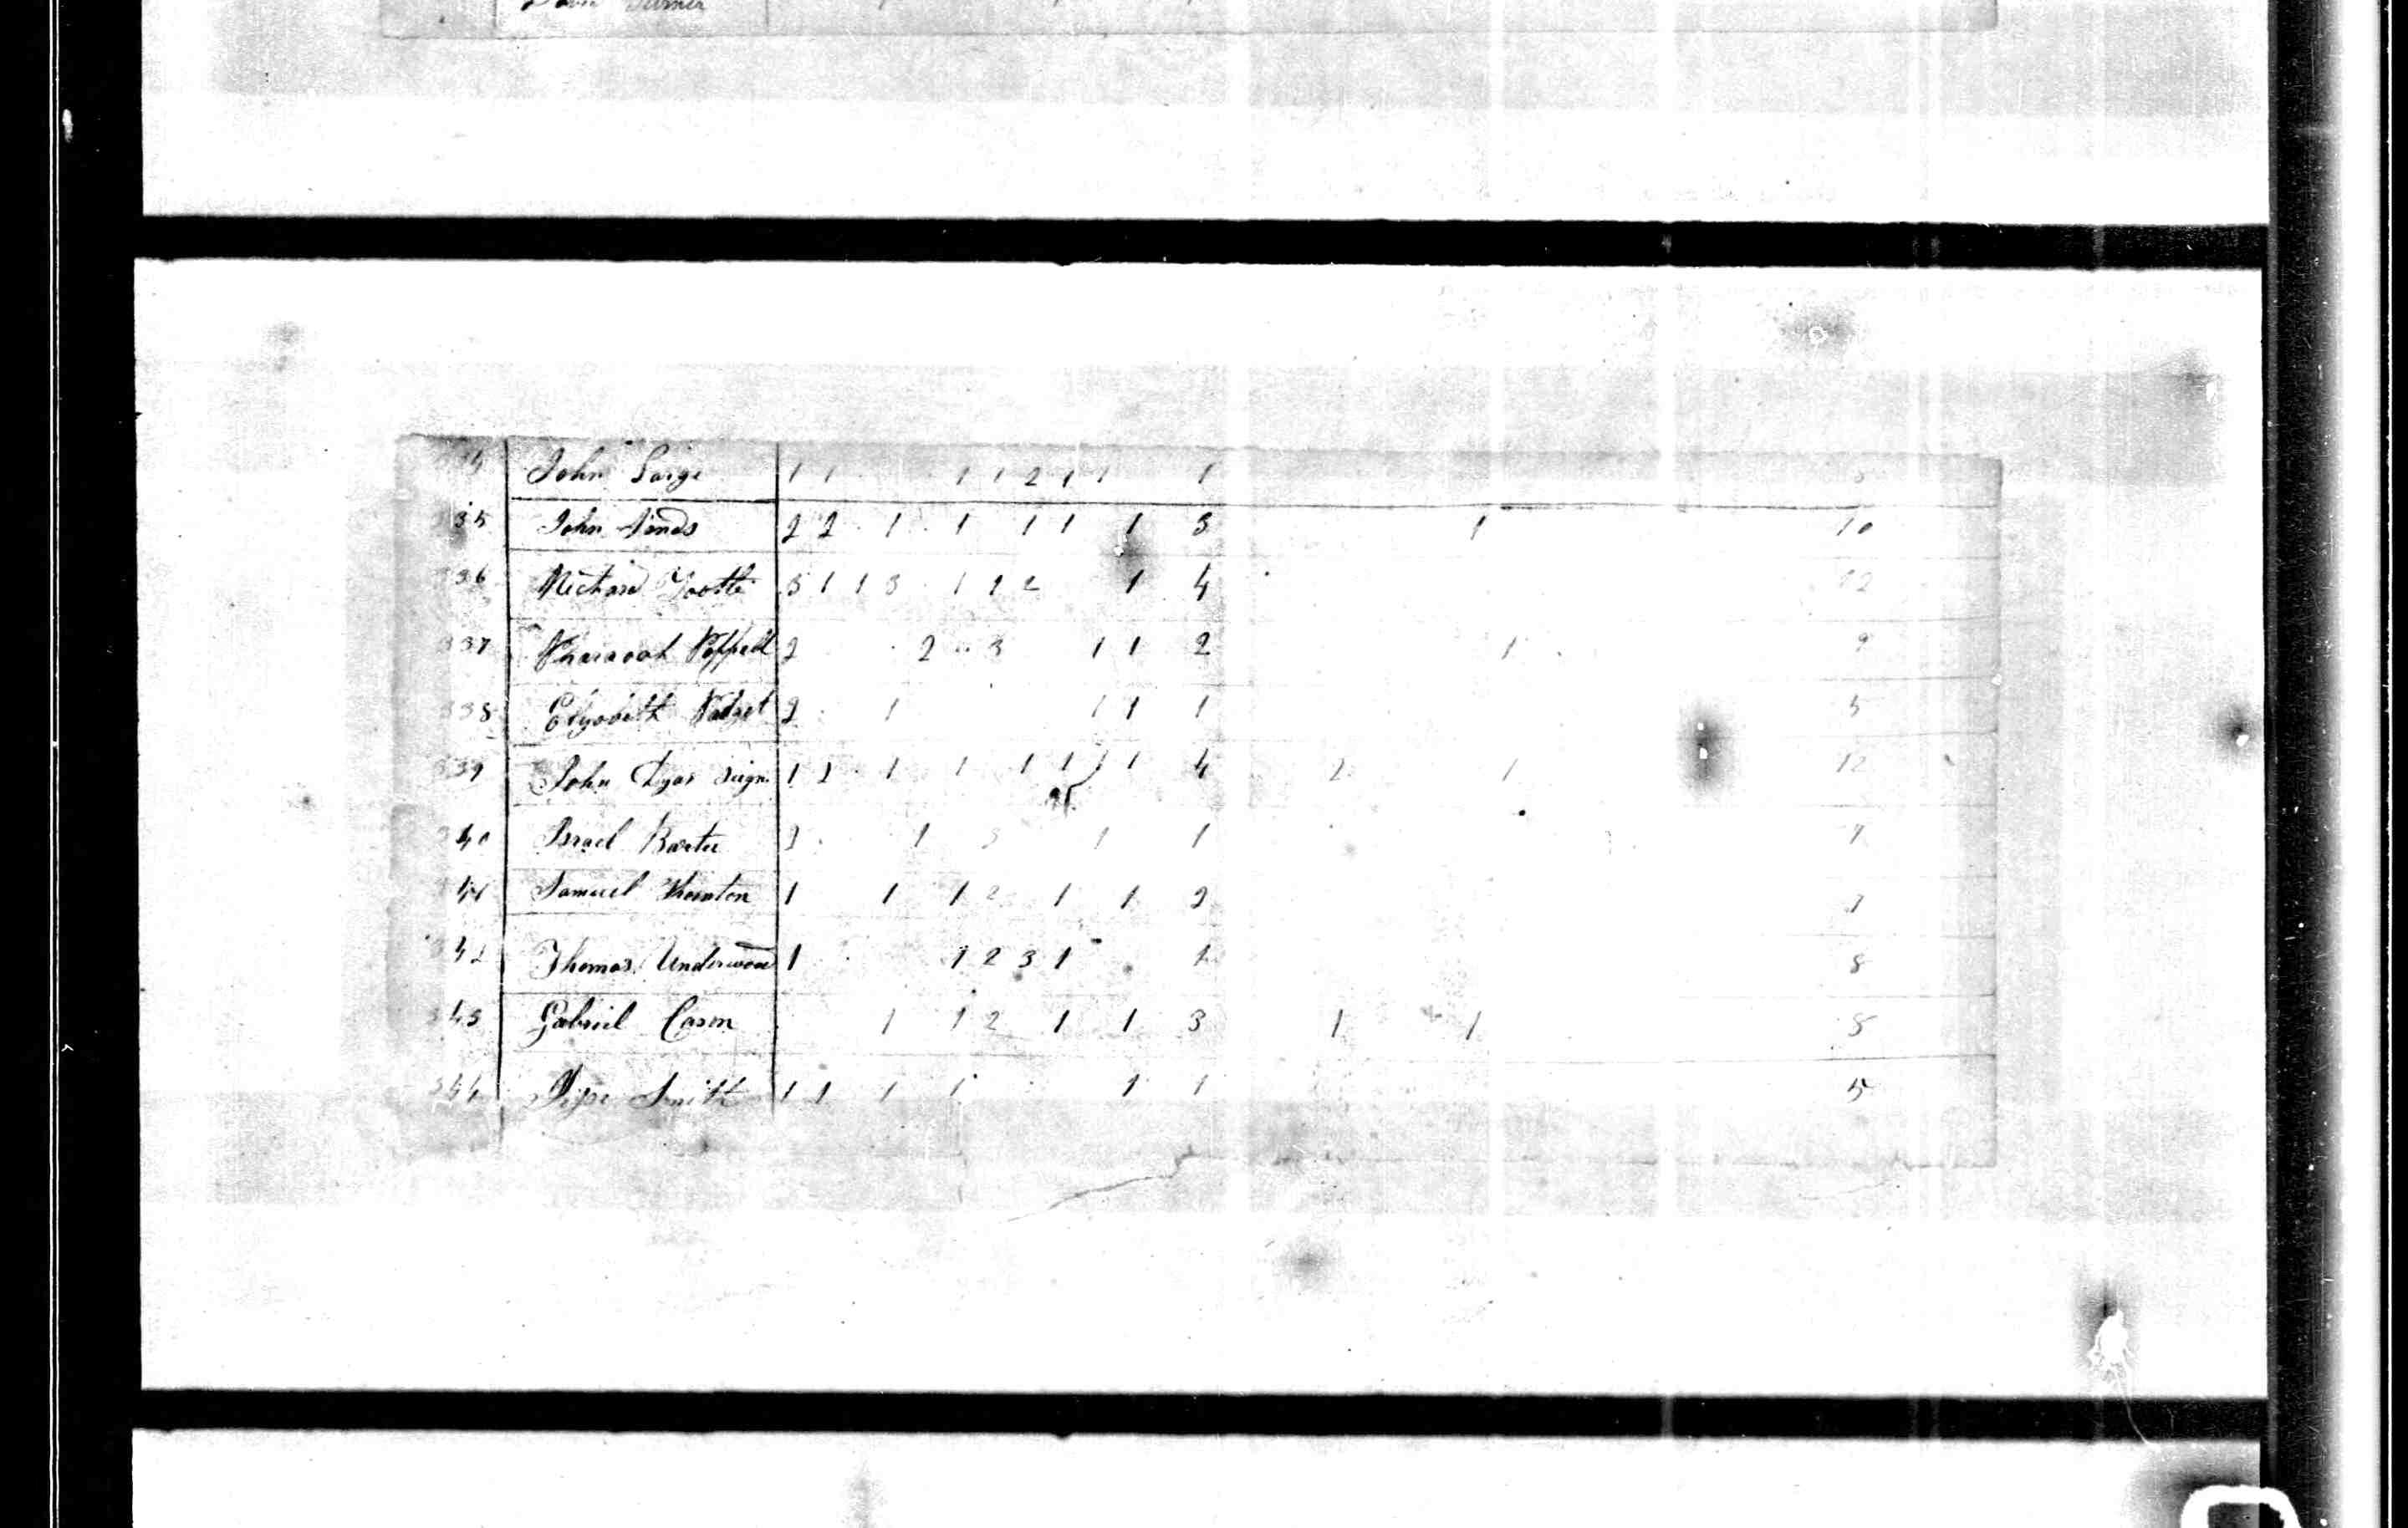 Turner
John Large 1 1 1 1 2 1 1 1
335 John Amos 2 2 1 1 1 1 1 3 1 10
336 Richard Tootle 3 1 1 3 1 1 2 1 4 12
337 Pharaoah 2 2 3 1 1 2 1 9
338 Elizabeth Padget 2 1 1 1 1 5
339 John Dyar 1 2 1 1 1 1 1 1 4 2 1 12
340 Israel Barter 2 1 3 1 1 7
341 Samuel Thornton 1 1 1 2 1 1 2 7
342 Thomas Underwood 1 1 2 3 1 1 8
343 Gabriel Cason 1 1 2 1 1 3 1 1 8
344 Smith 1 1 1 1 1 1 5